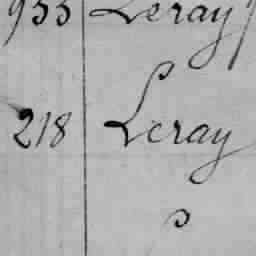 933 Leray
218 Leray